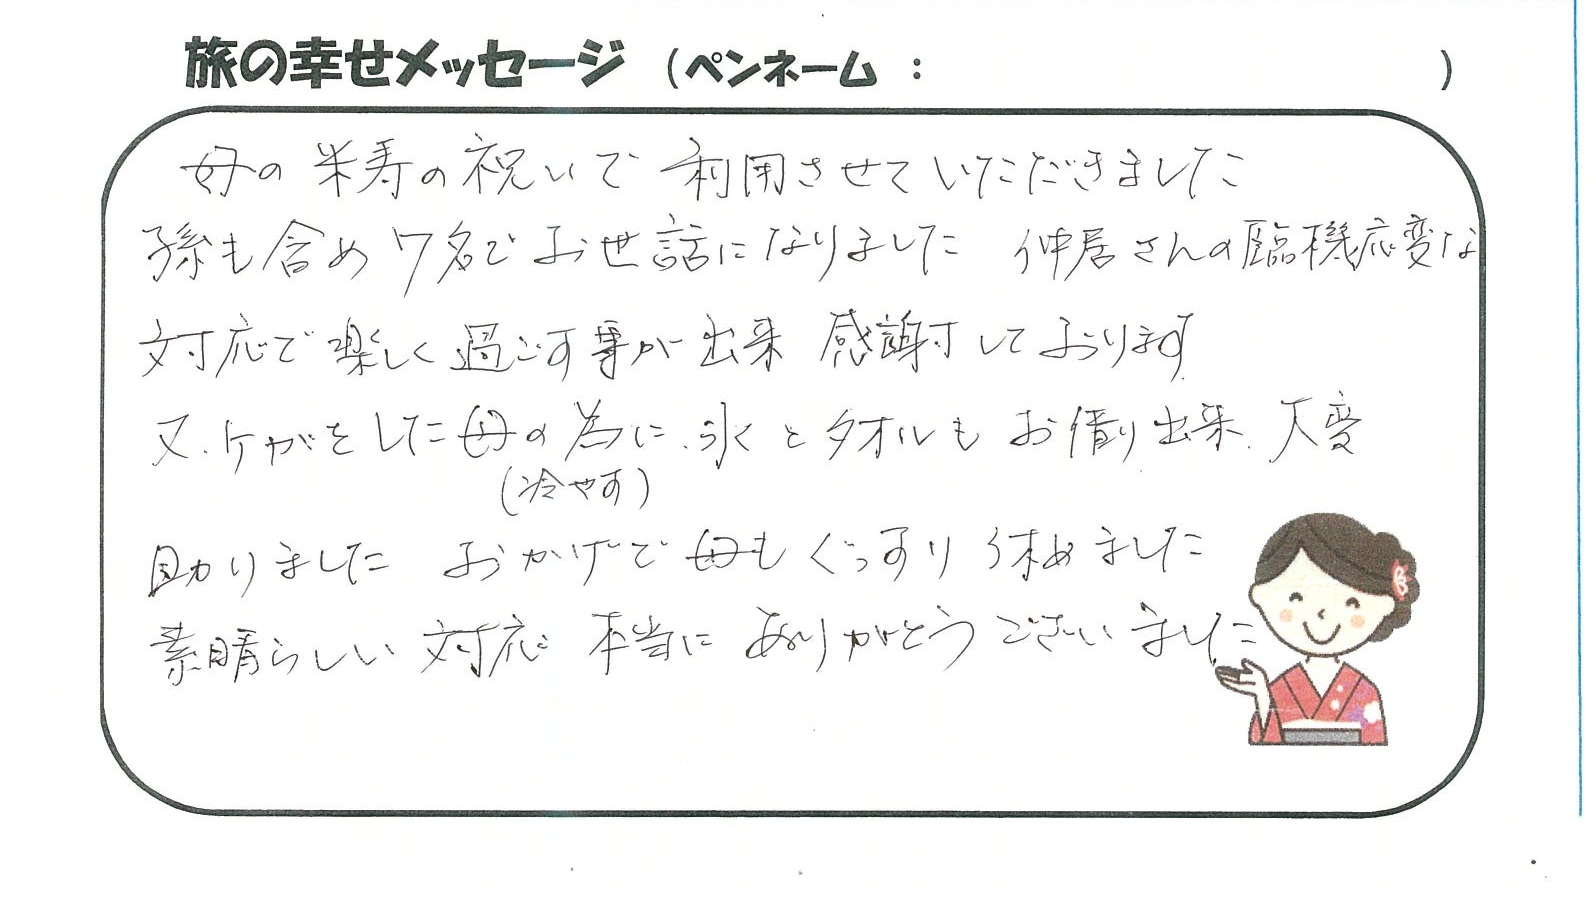 旅の幸せメッセージ (ペンネーム : )
母の米寿の祝いで 利用させていただきました
孫も含め7名でお世話になりました 仲居さんの臨機応変な
対応で楽しく過ごす事が出来 感謝しております
又、ケガをした母の為に、氷とタオルもお借り出来、大変
(冷やす)
助かりました おかげで母もぐっすり休めました
素晴らしい対応 本当にありがとうございました